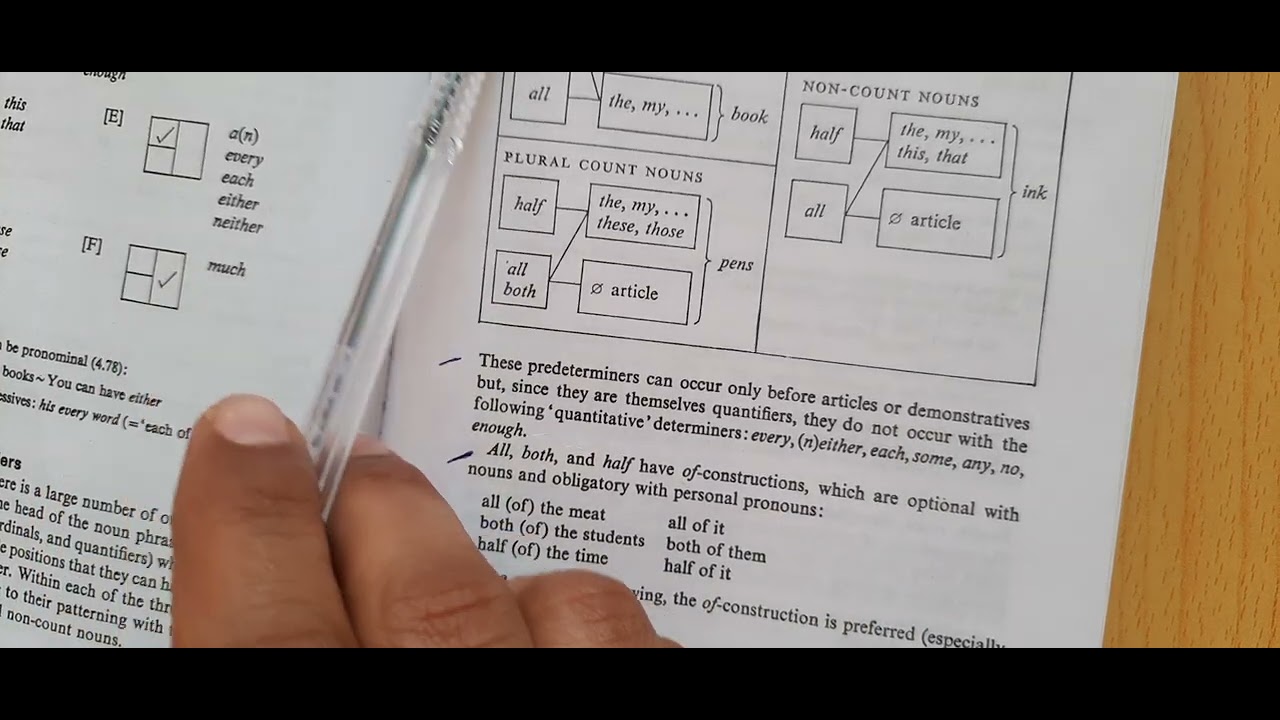 enough
this
that
[E]
a(n)
every
each
either
neither
[F]
much
be pronominal (4.78):
books ~ You can have either
his every word (= 'each of
ere is a large number of
head of the noun
and quantifiers)
positions that they can
Within each of the
to their patterning with
non-count nouns.
all
the, my, . . .
book
PLURAL COUNT NOUNS
half
the, my, . . .
these, those
all
both
ø article
pens
NON-COUNT NOUNS
half
the, my, . . .
this, that
all
ø article
ink
These predeterminers can occur only before articles or demonstratives
but, since they are themselves quantifiers, they do not occur with the
following 'quantitative' determiners: every, (n)either, each, some, any, no,
enough.
All, both, and half have of-constructions, which are optional with
nouns and obligatory with personal pronouns:
all (of) the meat all of it
both (of) the students both of them
half (of) the time half of it
the of-construction is preferred (especially